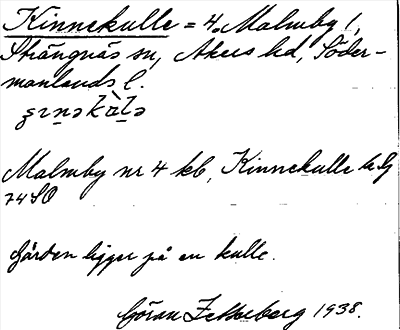 Kinnekulle = 4. Malmby 1,
Strängnäs sn, Åkers hd, Söder-
manlands l.
Malmby nr 4 kb, Kinnekulle
74 SO
Gården ligger på en kulle.
Göran Zetterberg 1938.